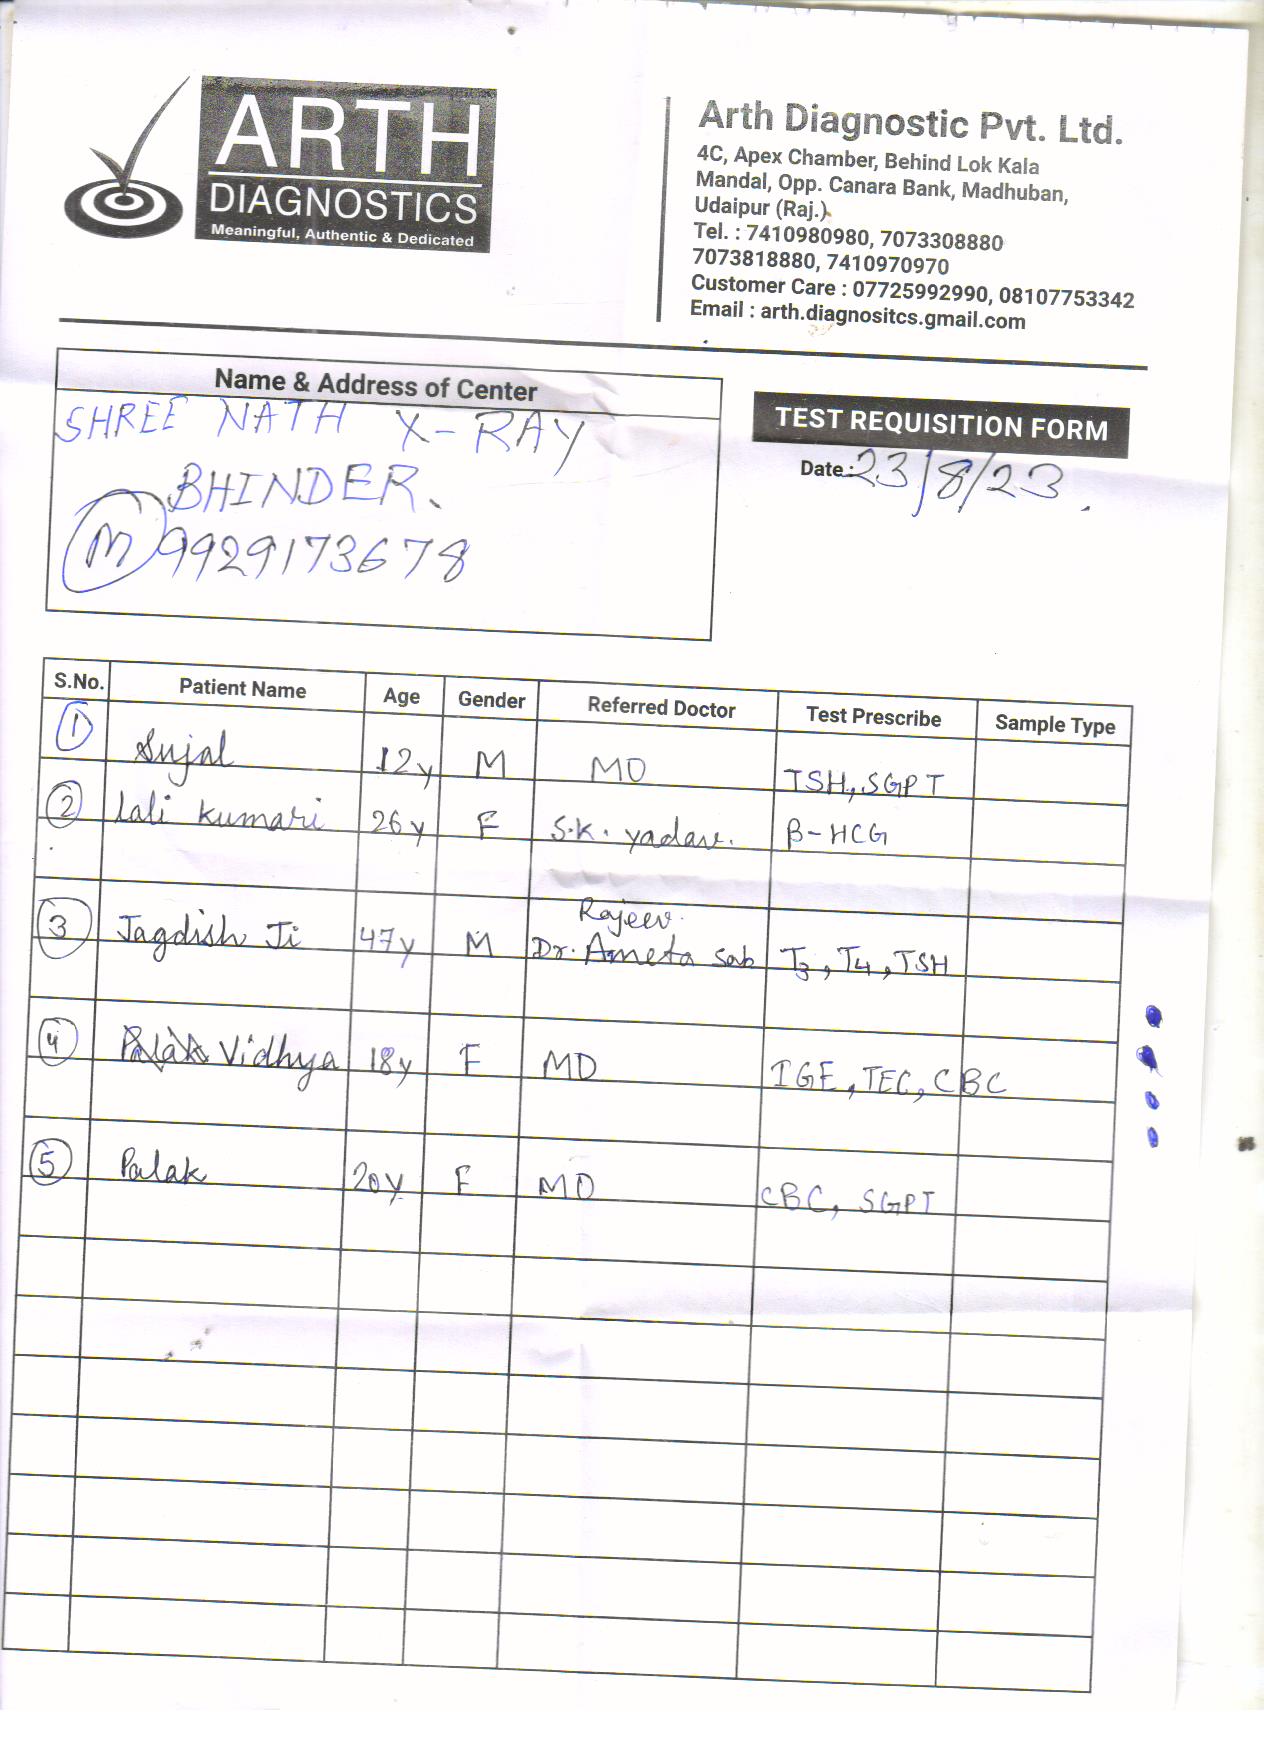 ARTH
DIAGNOSTICS
Meaningful, Authentic & Dedicated
Arth Diagnostic Pvt. Ltd.
4C, Apex Chamber, Behind Lok Kala
Mandal, Opp. Canara Bank, Madhuban,
Udaipur (Raj.)
Tel. : 7410980980, 7073308880
7073818880, 7410970970
Customer Care : 07725992990, 08107753342
Email : arth.diagnositcs.gmail.com
Name & Address of Center
SHREE NATH X-RAY
BHINDER.
M 9929173678
TEST REQUISITION FORM
Date : 23/8/23.
S.No. Patient Name Age Gender Referred Doctor Test Prescribe Sample Type
1 Sujal 12y M MD TSH, SGPT
2 Lali Kumari 26y F S.K. Yadav. B-HCG
Rajeev.
3 Jagdish Ji 47y M Dr. Ameta sab T3, T4, TSH
4 Palak Vidhya 18y F MD IGE, TEC, CBC
5 Palak 20y F MD CBC, SGPT